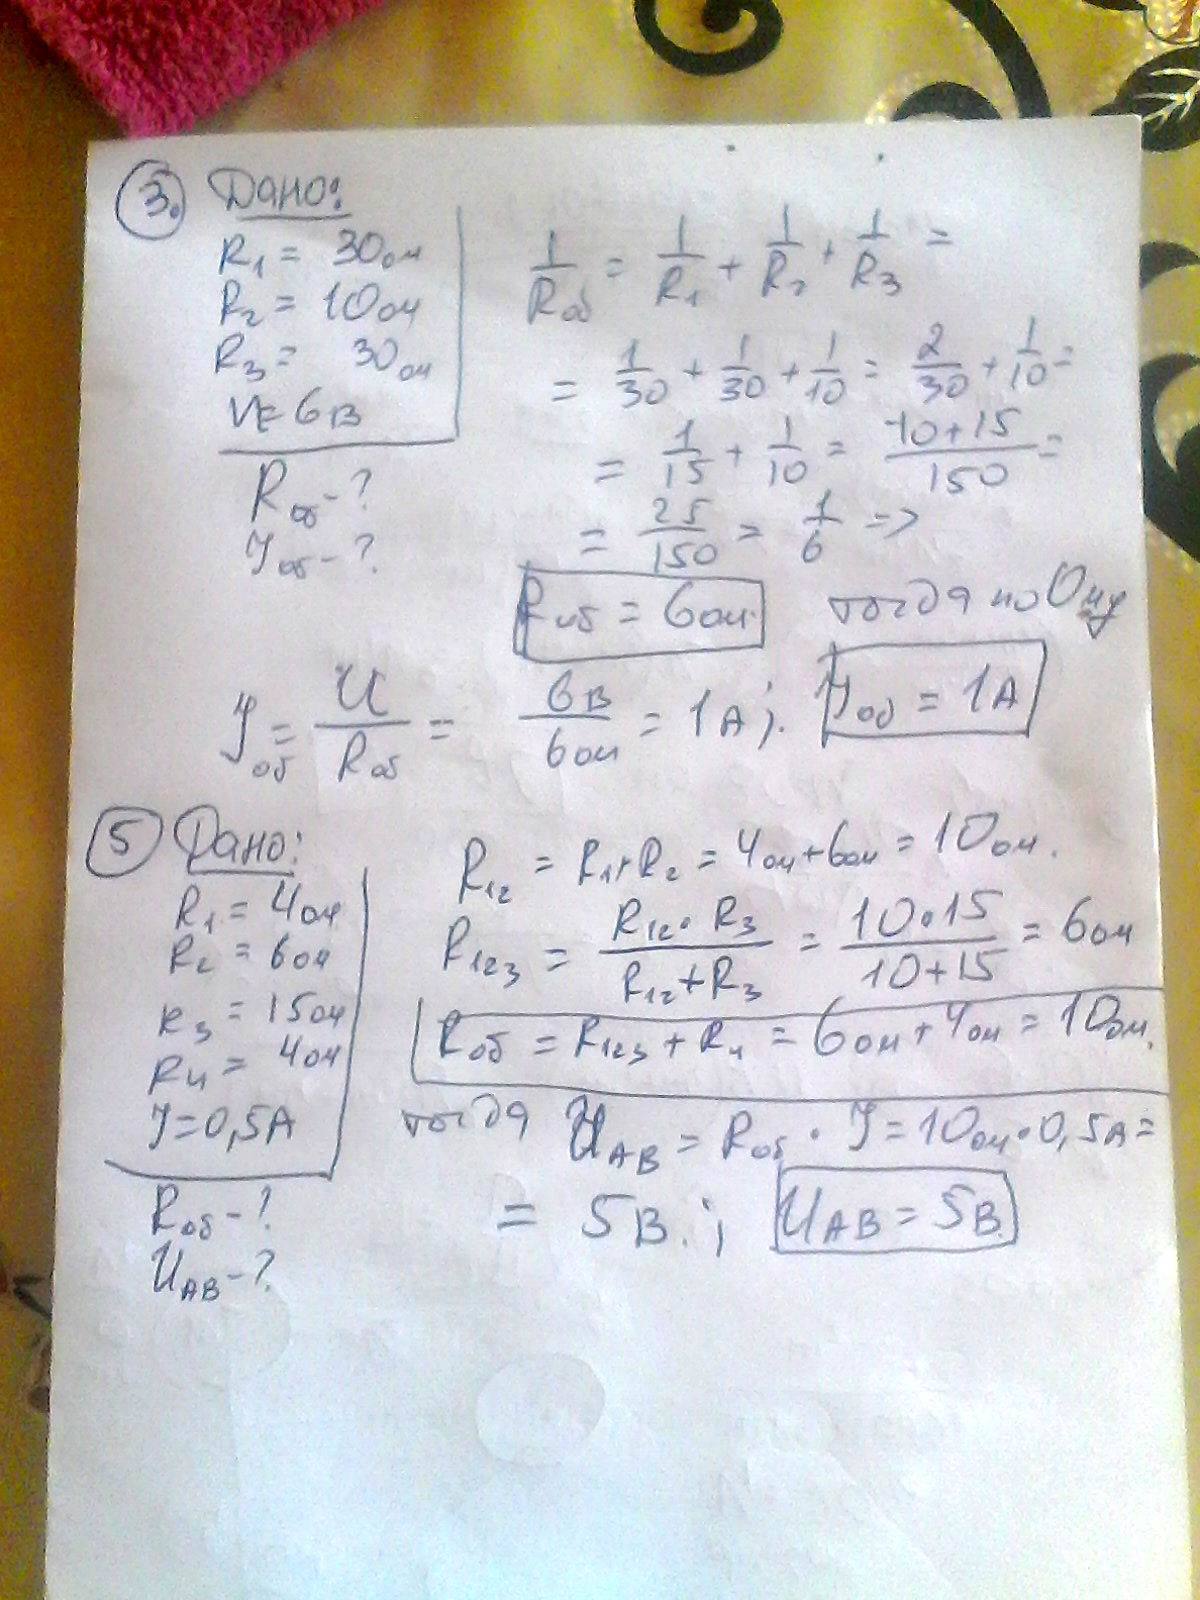 3. Дано:
R1 = 30 ом
R2 = 10 ом
R3 = 30 ом
V = 6 В
Rоб - ?
Jоб - ?
1/Rоб = 1/R1 + 1/R2 + 1/R3 =
= 1/30 + 1/30 + 1/10 = 2/30 + 1/10 =
= 1/15 + 1/10 = (10+15)/150 =
= 25/150 = 1/6 =>
Rоб = 6 ом. тогда по Ому
Jоб = U/Rоб = 6В/6ом = 1А; Jоб = 1А
5 Дано:
R1 = 4 ом
R2 = 6 ом
R3 = 15 ом
R4 = 4 ом
J = 0,5 А
Rоб - ?
UАВ - ?
R12 = R1 + R2 = 4 ом + 6 ом = 10 ом.
R123 = (R12 · R3)/(R12 + R3) = (10 · 15)/(10 + 15) = 6 ом
Rоб = R123 + R4 = 6 ом + 4 ом = 10 ом.
тогда UАВ = Rоб · J = 10 ом · 0,5 А =
= 5 В.; UАВ = 5 В.